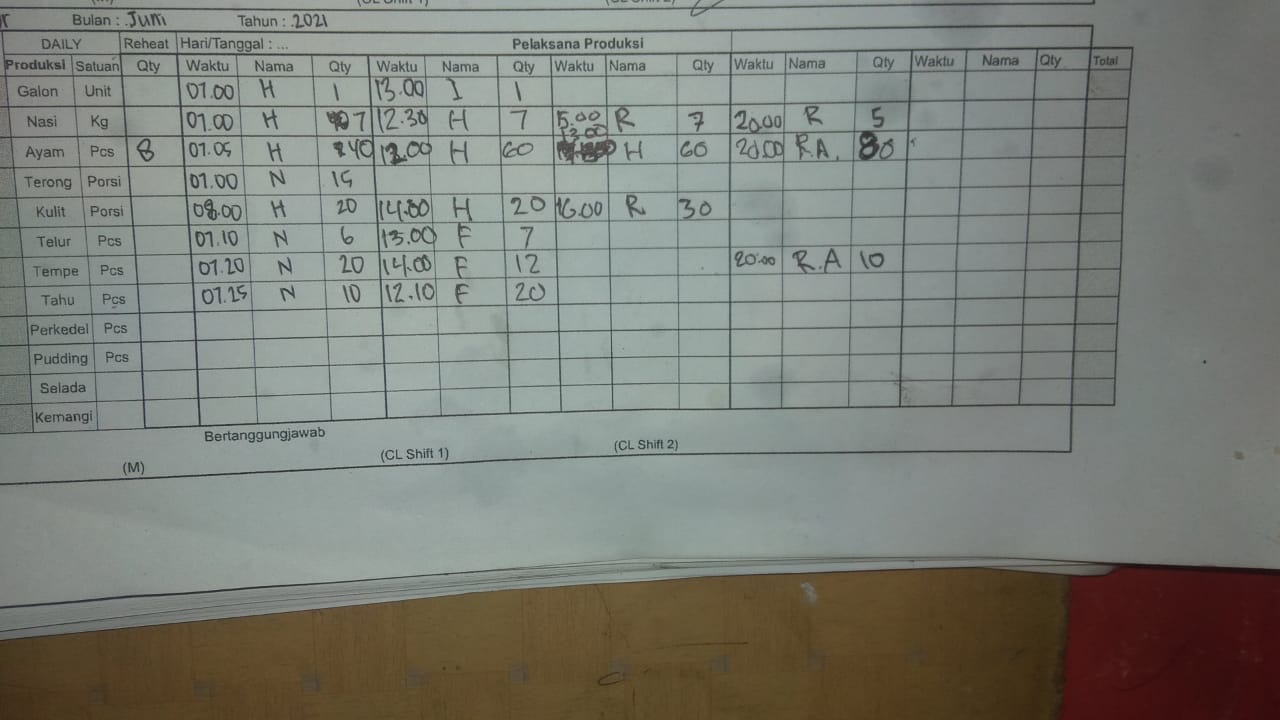 Bulan : Juni Tahun : 2021
DAILY Reheat Hari/Tanggal : ... Pelaksana Produksi
Produksi Satuan Qty Waktu Nama Qty Waktu Nama Qty Waktu Nama Qty Waktu Nama Qty Waktu Nama Qty Total
Galon Unit 07.00 H 1 13.00 I 1
Nasi Kg 07.00 H 7 12.30 H 7 15.00 R 7 20.00 R 5
Ayam Pcs 8 07.05 H 40 12.00 H 60 13.00 H 60 20.00 R.A. 80
Terong Porsi 07.00 N 15
Kulit Porsi 08.00 H 20 14.00 H 20 16.00 R 30
Telur Pcs 07.10 N 6 13.00 F 7
Tempe Pcs 07.20 N 20 14.00 F 12 20.00 R.A 10
Tahu Pcs 07.25 N 10 12.10 F 20
Perkedel Pcs
Pudding Pcs
Selada
Kemangi
Bertanggungjawab
(M) (CL Shift 1) (CL Shift 2)